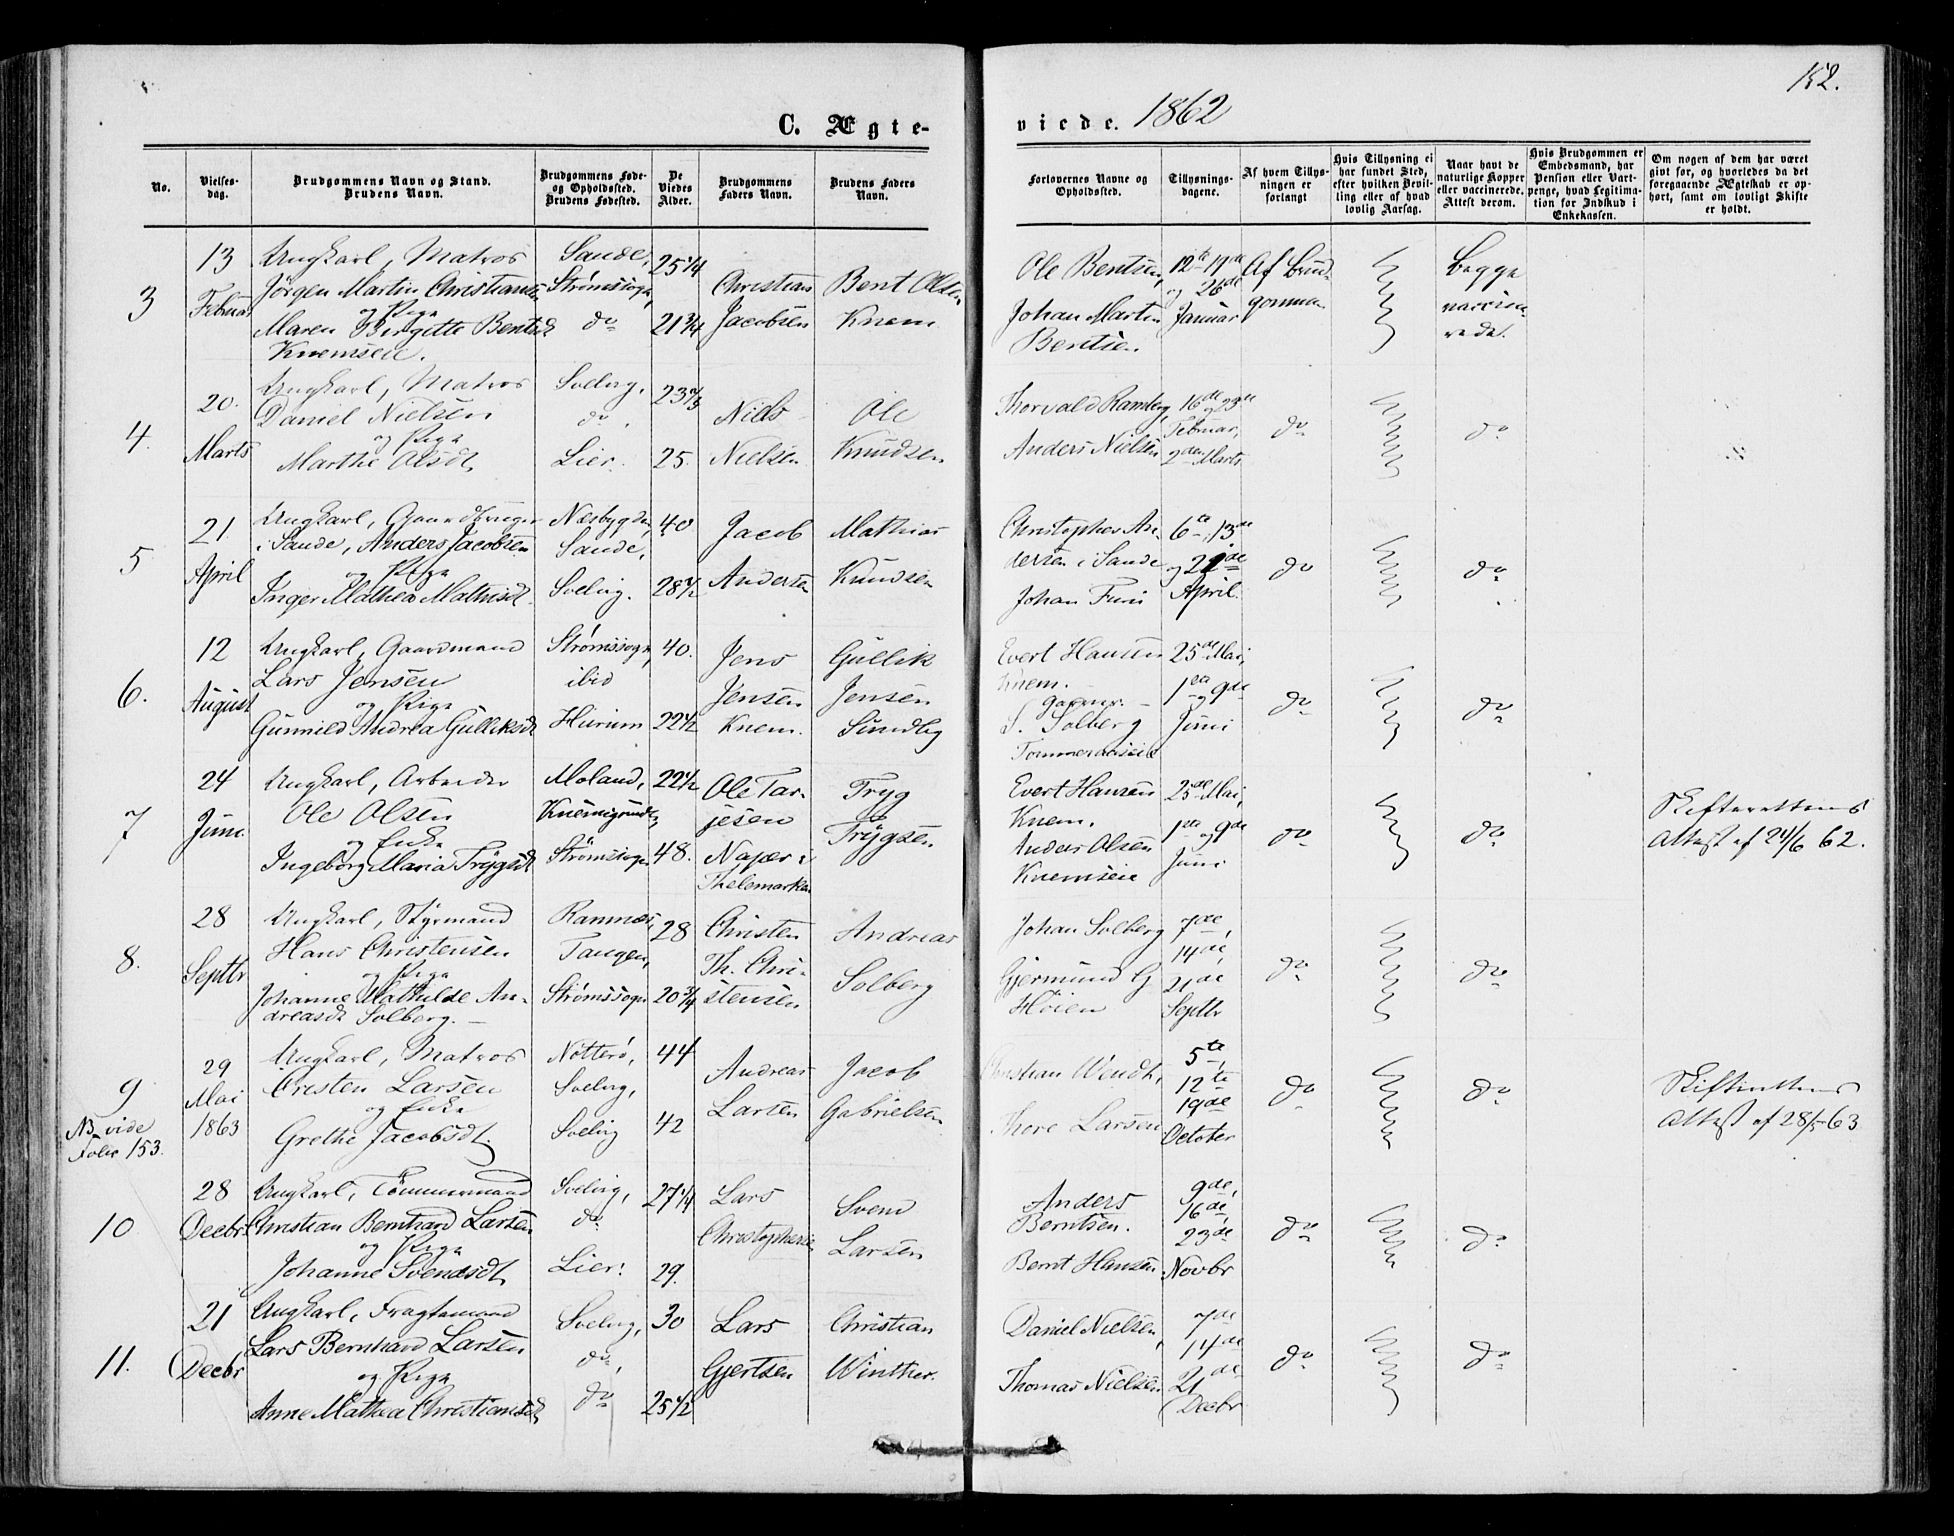 152.
C. Ægte-
viede. 1862
No.
Vielses-
dag.
Brudgommens Navn og Stand.
Brudens Navn.
Brudgommens Føde-
og Opholdssted.
Brudens Fødested.
De
Viedes
Alder.
Brudgommens
Faders Navn.
Brudens Faders
Navn.
Forlovernes Navne og
Opholdssted.
Tillysnings-
dagene.
Af hvem Tillys-
ningen er
forlangt
Hvis Tillysning ei
har fundet Sted,
efter hvilken Bevil-
ling eller af hvad
lovlig Aarsag.
Naar havt de
naturlige Kopper
eller vaccinerede.
Attest derom.
Hvis Brudgommen er
Embedsmand, har
Pension eller Vart-
penge, hvad Legitima-
tion for Indskud i
Enkekassen.
Om nogen af dem har været
gift før, og hvorledes da det
foregaaende Ægteskab er op-
hørt, samt om lovligt Skifte
er holdt.
3
13
Februar
Ungkarl, Matros
Jörgen Martin Christians
og Pige
Maren Birgitte Bentsd
Knemseie.
Sande,
Strømssogn,
do
25 1/4
21 3/4
Christian
Jacobsen
Bent Olsen
Knem
Ole Bentsen,
Johan Martin
Bentsen.
12te 19de
og 26de
Januar
Af Brud-
gommen
begge
vaccine-
rede.
4.
20.
Marts
Ungkarl, Matros
Daniel Nielsen
og Pige
Marthe Olsdt
Svelvig,
do.
Lier.
23
25.
Niels
Nielsen
Ole
Knudsen
Thorvald Ramberg,
Anders Nielsen
16de og 23de
Februar,
2den Marts
do
do
5
21.
April
Ungkarl, Gaardbruger
i Sande, Anders Jacobsen
og Pige
Inger Mathea Mathisdt.
Næsbygden,
Sande,
Svelvig.
40
28 1/2
Jacob
Andersen
Mathias
Knudsen
Christopher An-
dersen i Sande
Johan Furu
6te, 13de
og 21de
April.
do
do
6.
12
August
Ungkarl, Gaardmand
Lars Jensen
og Pige
Gunnild Andrea Gulliksdt
Strømssogn,
ibid
Hurum
40.
22 1/2
Jens
Jensen
Knem.
Gullik
Jensen
Sundby
Evert Hansen
Knem.
S. Solberg
Tømmeraaseie
25de Mai,
1ste og 9de
Juni
do
do
7
24
Juni
Ungkarl, Arbeider
Ole Olsen
og Enke
Ingeborg Maria Trygsdt
Moland,
Knemsgrunden,
Strømssogn
22 1/2
48.
Ole Tar-
jesen
Napær i
Thelemarken
Tryg
Trygsen
Evert Hansen
Knem.
Anders Olsen
Knemseie
25de Mai,
1ste og 9de
Juni
do
do
Skifterettens
Attest af 24/6 62.
8.
28
Septbr
Ungkarl, Styrmand
Hans Christensen
og Pige
Johanne Mathilde An-
dreasdt Solberg.
Ramnes,
Tangen,
Strømssogn
28
20 3/4
Christen
Th. Chri-
stensen
Andreas
Solberg
Johan Solberg
Gjermund G
Høien
7de,
14de,
21de
Septbr
do
do
9
NB vide
Folio 153.
29
Mai
1863
Ungkarl, Matros
Cristen Larsen
og Enke
Grethe Jacobsdt.
Nötterö,
Svelvig,
Svelvig
44
42
Andreas
Larsen
Jacob
Gabrielsen
Christian Windt,
Thore Larsen
5te,
12te
19de
October
do
do
Skifterettens
Attest af 28/5 63
10
28
Decbr
Ungkarl, Tömmermand
Christian Bernhard Larsen
og Pige
Johanne Svendsdt
Svelvig,
do
Lier.
27 1/4
29.
Lars
Christophersen
Svend
Larsen
Anders
Berntsen.
Bernt Hansen
9de,
16de,
23de
Novbr
do
do
11.
21
Decbr
Ungkarl, Fragtemand
Lars Bernhard Larsen
og Pige
Anne Mathea Christiansdt
Svelvig,
do,
do
30
25 1/2
Lars
Gjertsen
Christian
Winther.
Daniel Nielsen,
Thomas Nielsen
7de
14de
21de
Decbr
do
do